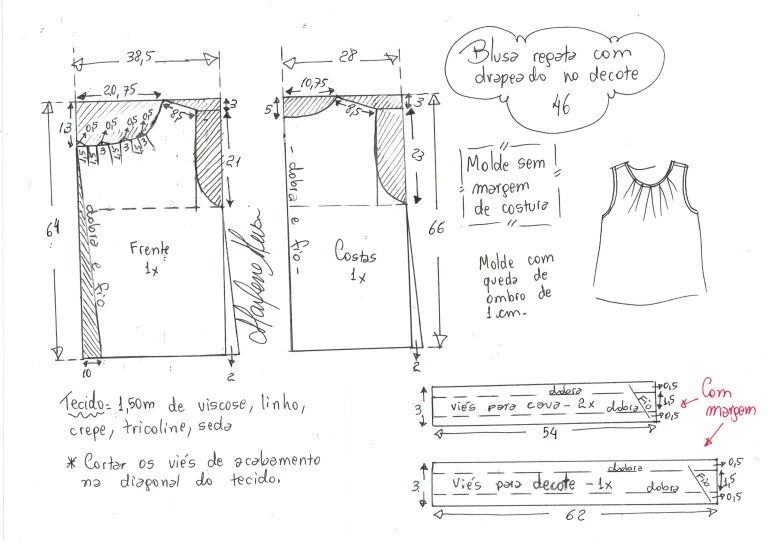 Blusa regata com
drapeado no decote
46
38,5
20,75
13
0,5 0,5 0,5 0,5
1,5 1,5 3 1,5 3 1,5 3
8,5
3
21
64
dobra e fio
Frente
1x
10
2
28
10,75
5
8,5
3
23
66
- dobra e fio -
Costas
1x
2
Marlene Mukai
Molde sem
margem
de costura
Molde com
queda de
ombro de
1 cm.
Tecido= 1,50m de viscose, linho,
crepe, tricoline, seda
* Cortar os viés de acabamento
na diagonal do tecido.
3
dobra
viés para cava - 2x dobra
Fio
0,5
1,5
0,5
54
Com
margem
3
dobra
Viés para decote - 1x dobra
Fio
0,5
1,5
0,5
62